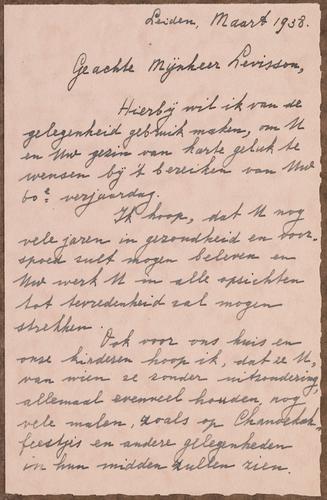 Leiden, Maart 1938.
Geachte Mijnheer Levisson,
Hierbij wil ik van de
gelegenheid gebruik maken, om U
en Uw gezin van harte geluk te
wensen bij 't bereiken van Uw
60e verjaardag.
Ik hoop, dat U nog
vele jaren in gezondheid en voor-
spoed zult mogen beleven en
Uw werk U in alle opzichten
tot tevredenheid zal mogen
strekken.
Ook voor ons huis en
onze kinderen hoop ik, dat ze U,
van wien ze zonder uitzondering,
allemaal evenveel houden, nog
vele malen, zoals op Chanoekah-
feestjes en andere gelegenheden
in hun midden zullen zien.